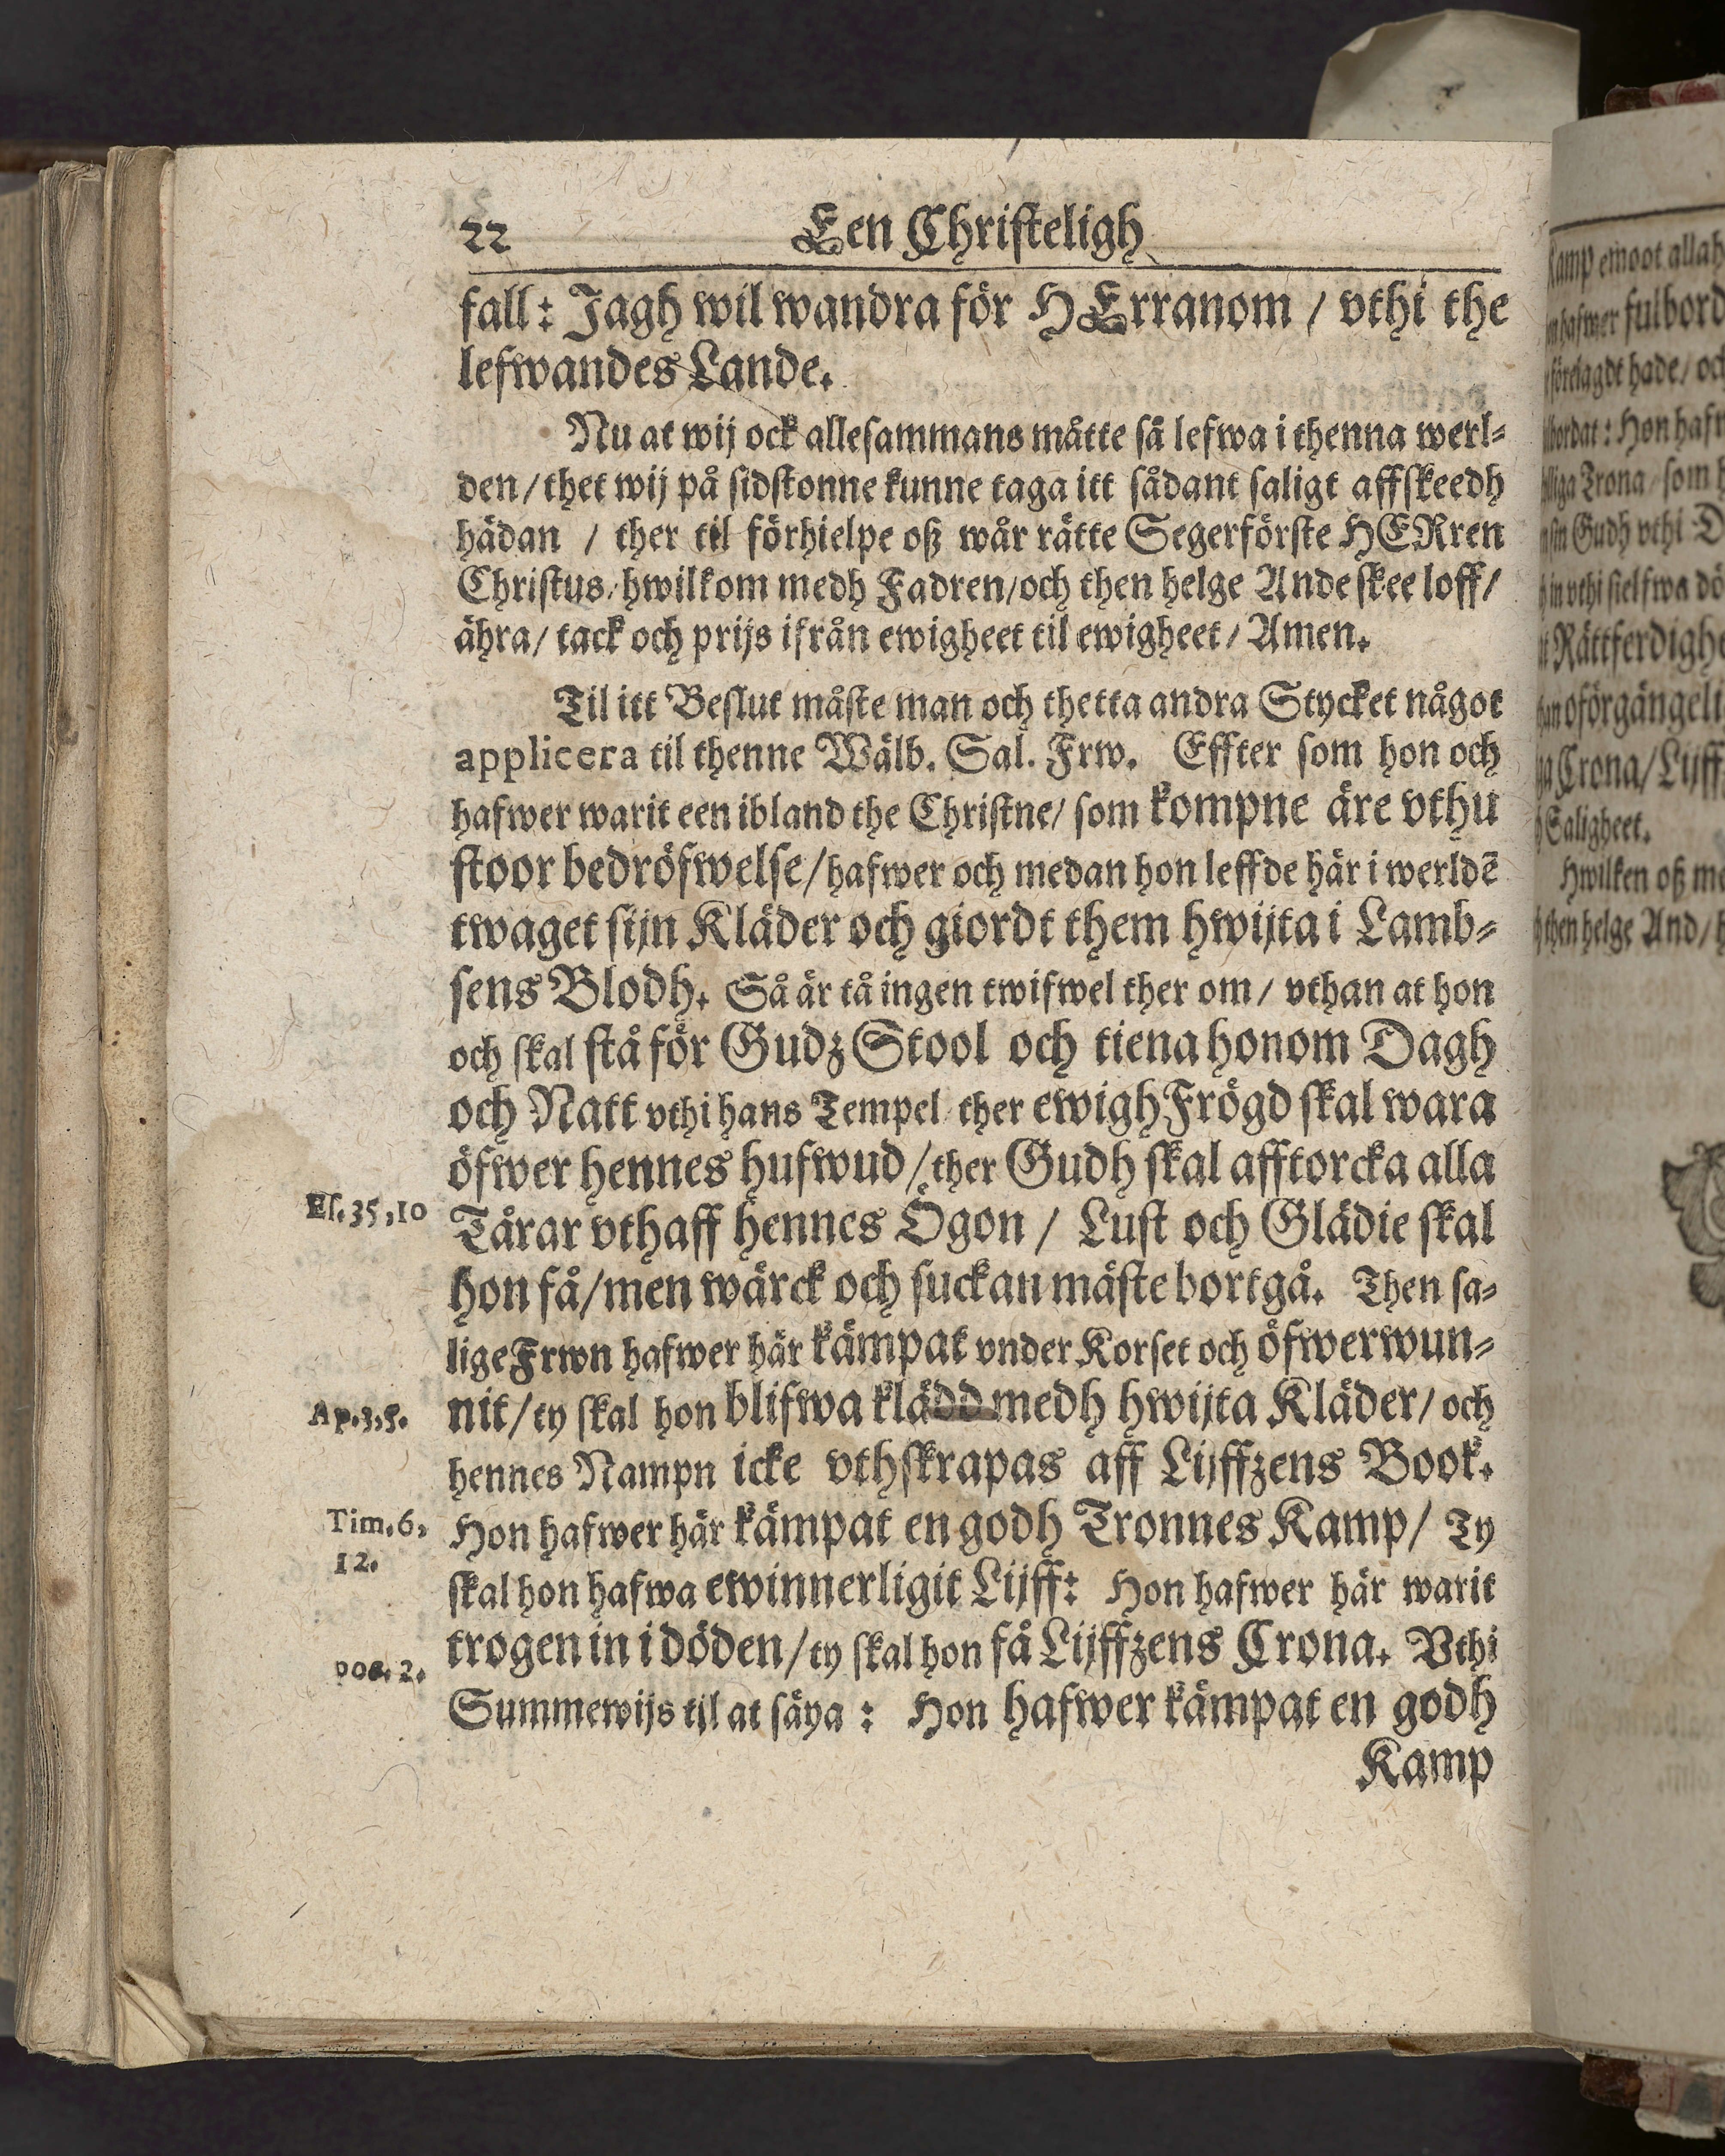 22 Een Christeligh
fall: Jagh wil wandra för HErranom / vthi the
lefwandes Lande.
Nu at wij ock allesammans måtte så lefwa i thenna werl-
den / thet wij på sidstonne kunne taga itt sådant saligt affskeedh
hädan / ther til förhielpe oß wår rätte Segerförste HERren
Christus / hwilkom medh Fadren / och then helge Ande skee loff /
ähra / tack och prijs ifrån ewigheet til ewigheet / Amen.
Til itt Beslut måste man och thetta andra Stycket något
applicera til thenne Wälb. Sal. Frw. Effter som hon och
hafwer warit een ibland the Christne / som kompne äre vthu
stoor bedröfwelse / hafwer och medan hon leffde här i werldē
twaget sijn Kläder och giordt them hwijta i Lamb-
sens Blodh. Så är tå ingen twifwel ther om / vthan at hon
och skal stå för Gudz Stool och tiena honom Dagh
och Natt vthi hans Tempel ther ewigh Frögd skal wara
öfwer hennes hufwud / ther Gudh skal afftorcka alla
Es. 35, 10 Tårar vthaff hennes Ögon / Lust och Glädie skal
hon få / men wärck och suckan mäste bortgå. Then sa-
lige Frwn hafwer här kämpat vnder Korset och öfwerwun-
Ap. 3, 5. nit / ty skal hon blifwa klädd medh hwijta Kläder / och
hennes Nampn icke vthskrapas aff Lijffzens Book.
Tim. 6, Hon hafwer här kämpat en godh Tronnes Kamp / Ty
12. skal hon hafwa ewinnerligit Lijff: Hon hafwer här warit
trogen in i döden / ty skal hon få Lijffzens Crona. Vthi
poc. 2. Summewijs til at säya : Hon hafwer kämpat en godh
Kamp